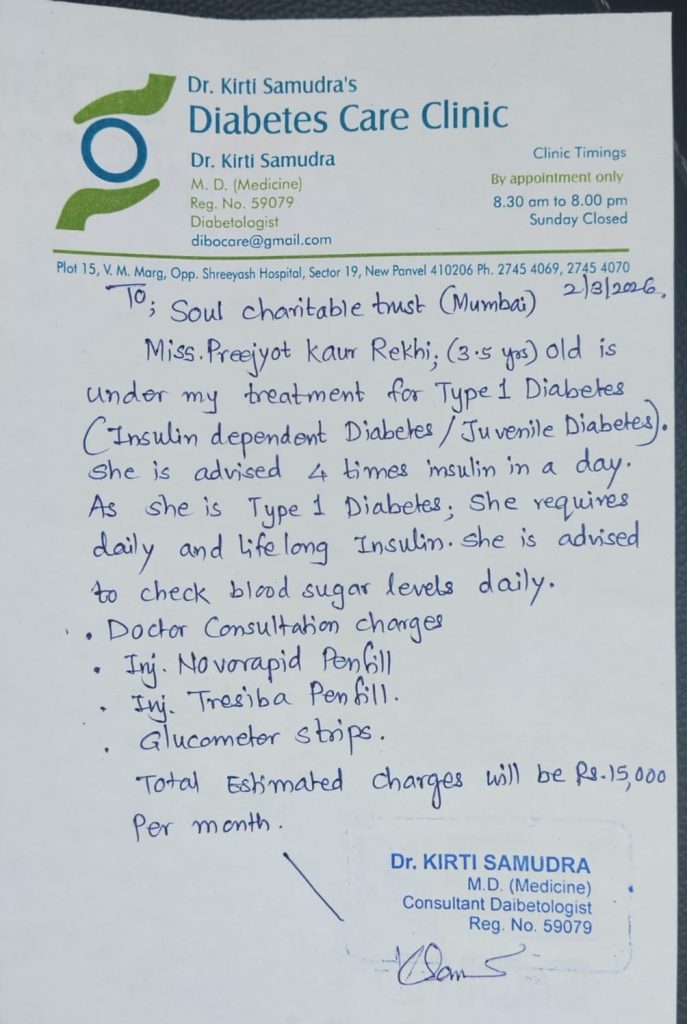 Dr. Kirti Samudra's
Diabetes Care Clinic
Dr. Kirti Samudra
M. D. (Medicine)
Reg. No. 59079
Diabetologist
dibocare@gmail.com
Clinic Timings
By appointment only
8.30 am to 8.00 pm
Sunday Closed
Plot 15, V. M. Marg, Opp. Shreeyash Hospital, Sector 19, New Panvel 410206 Ph. 2745 4069, 2745 4070
2/3/2026,
To; Soul charitable trust (Mumbai)
Miss. Preejyot Kaur Rekhi; (3.5 yrs) old is
under my treatment for Type 1 Diabetes
(Insulin dependent Diabetes / Juvenile Diabetes).
She is advised 4 times insulin in a day.
As she is Type 1 Diabetes; She requires
daily and lifelong Insulin. She is advised
to check blood sugar levels daily.
• Doctor Consultation charges
• Inj. Novorapid Penfill
• Inj. Tresiba Penfill.
• Glucometer strips.
Total Estimated charges will be Rs. 15,000
Per month.
Dr. KIRTI SAMUDRA
M.D. (Medicine)
Consultant Daibetologist
Reg. No. 59079